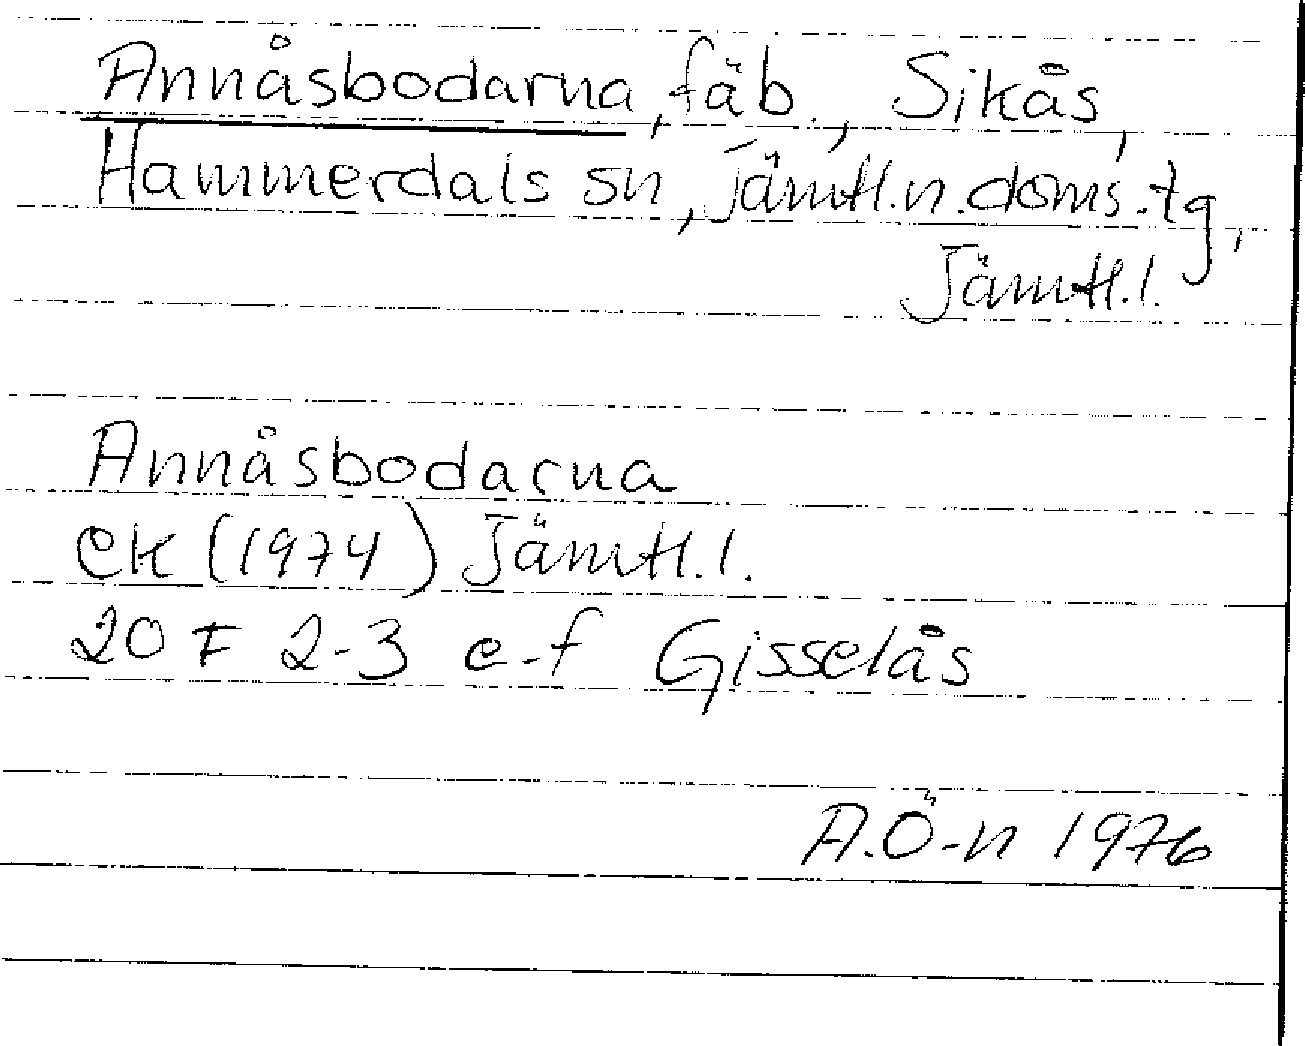 Annåsbodarna, fäb., Sikås,
Hammerdals sn, Jämtl.n.doms.tg,
Jämtl.l.
Annåsbodarna
ek (1974) Jämtl.l.
20 F 2-3 e-f Gisselås
A.Ö-n 1976